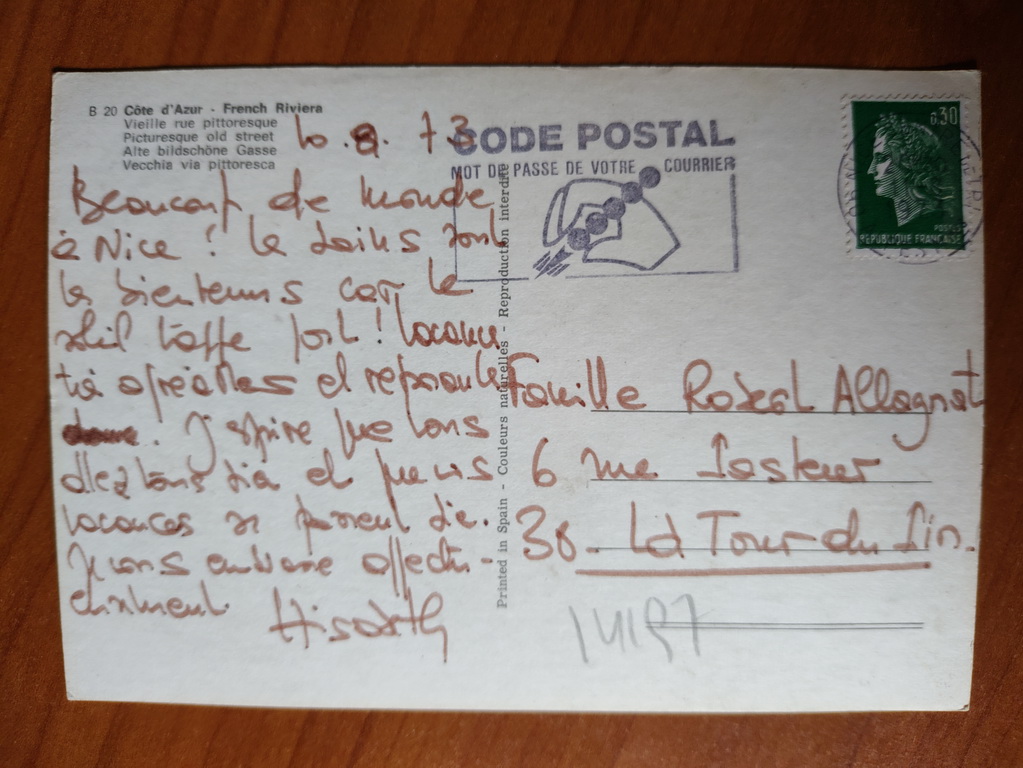 B 20 Côte d'Azur - French Riviera
Vieille rue pittoresque
Picturesque old street
Alte bildschöne Gasse
Vecchia via pittoresca
10.8.73
Beaucoup de monde
à Nice ! les bains sont
les bienvenus car le
soleil tape fort ! Vacances
très agréables et reposantes
! J'espère que vous
allez tous bien et que vos
vacances se passent bien.
Je vous embrasse affectu-
eusement
CODE POSTAL
MOT DE PASSE DE VOTRE COURRIER
0,30
POSTES
REPUBLIQUE FRANÇAISE
Printed in Spain - Couleurs naturelles - Reproduction interdite
Famille Robert Allagnat
6 rue Pasteur
38. La Tour du Pin.